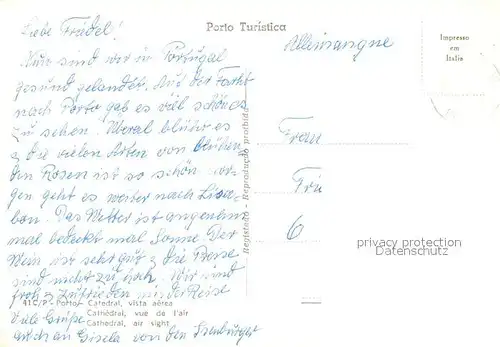 Liebe Friedel!
Nun sind wir in Portugal
gesund gelandet. Auf der Fahrt
nach Porto gab es viel schönes
zu sehen. Überal blüht es
& die vielen Arten von blühen
den Rosen ist so schön. Mor-
gen geht es weiter nach Lissa-
bon. Das Wetter ist angenehm
mal bedeckt mal Sonne. Der
Wein ist sehr gut & die Preise
sind nicht zu hoch. Wir sind
froh & zufrieden mit der Reise
41 C/P - Porto - Catedral, vista aérea
Cathédral, vue de l'air
Cathedral, air sight
Viele Grüße
auch an Gisela von den Isenburger
Porto Turística
Registado - Reprodução proibida
Impresso
em
Italia
Allemangne
Frau
6
privacy protection
Datenschutz